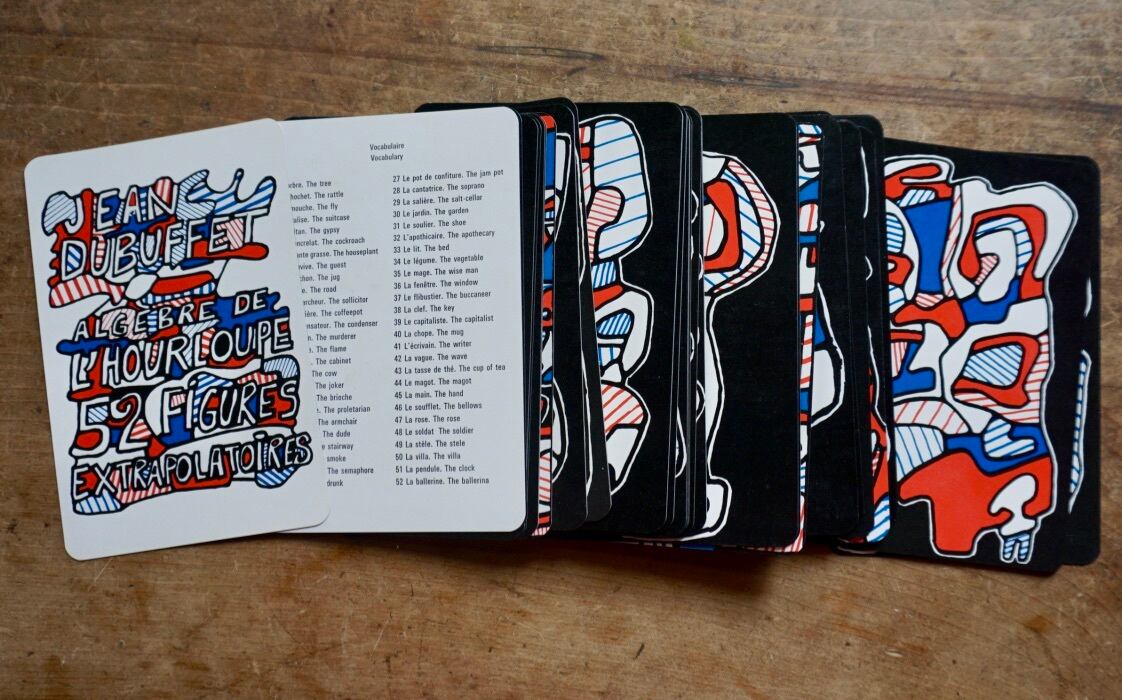 JEAN
DUBUFFET
ALGÈBRE DE
L'HOURLOUPE
52 FIGURES
EXTRAPOLATOIRES
Vocabulaire
Vocabulary
The tree
The rattle
The fly
The suitcase
The gypsy
The cockroach
grasse. The houseplant
The guest
The jug
The road
The sollicitor
The coffeepot
The condenser
The murderer
The flame
The cabinet
The cow
The joker
The brioche
The proletarian
The armchair
The dude
stairway
smoke
The semaphore
drunk
27 Le pot de confiture. The jam pot
28 La cantatrice. The soprano
29 La salière. The salt-cellar
30 Le jardin. The garden
31 Le soulier. The shoe
32 L'apothicaire. The apothecary
33 Le lit. The bed
34 Le légume. The vegetable
35 Le mage. The wise man
36 La fenêtre. The window
37 Le flibustier. The buccaneer
38 La clef. The key
39 Le capitaliste. The capitalist
40 La chope. The mug
41 L'écrivain. The writer
42 La vague. The wave
43 La tasse de thé. The cup of tea
44 Le magot. The magot
45 La main. The hand
46 Le soufflet. The bellows
47 La rose. The rose
48 Le soldat The soldier
49 La stèle. The stele
50 La villa. The villa
51 La pendule. The clock
52 La ballerine. The ballerina